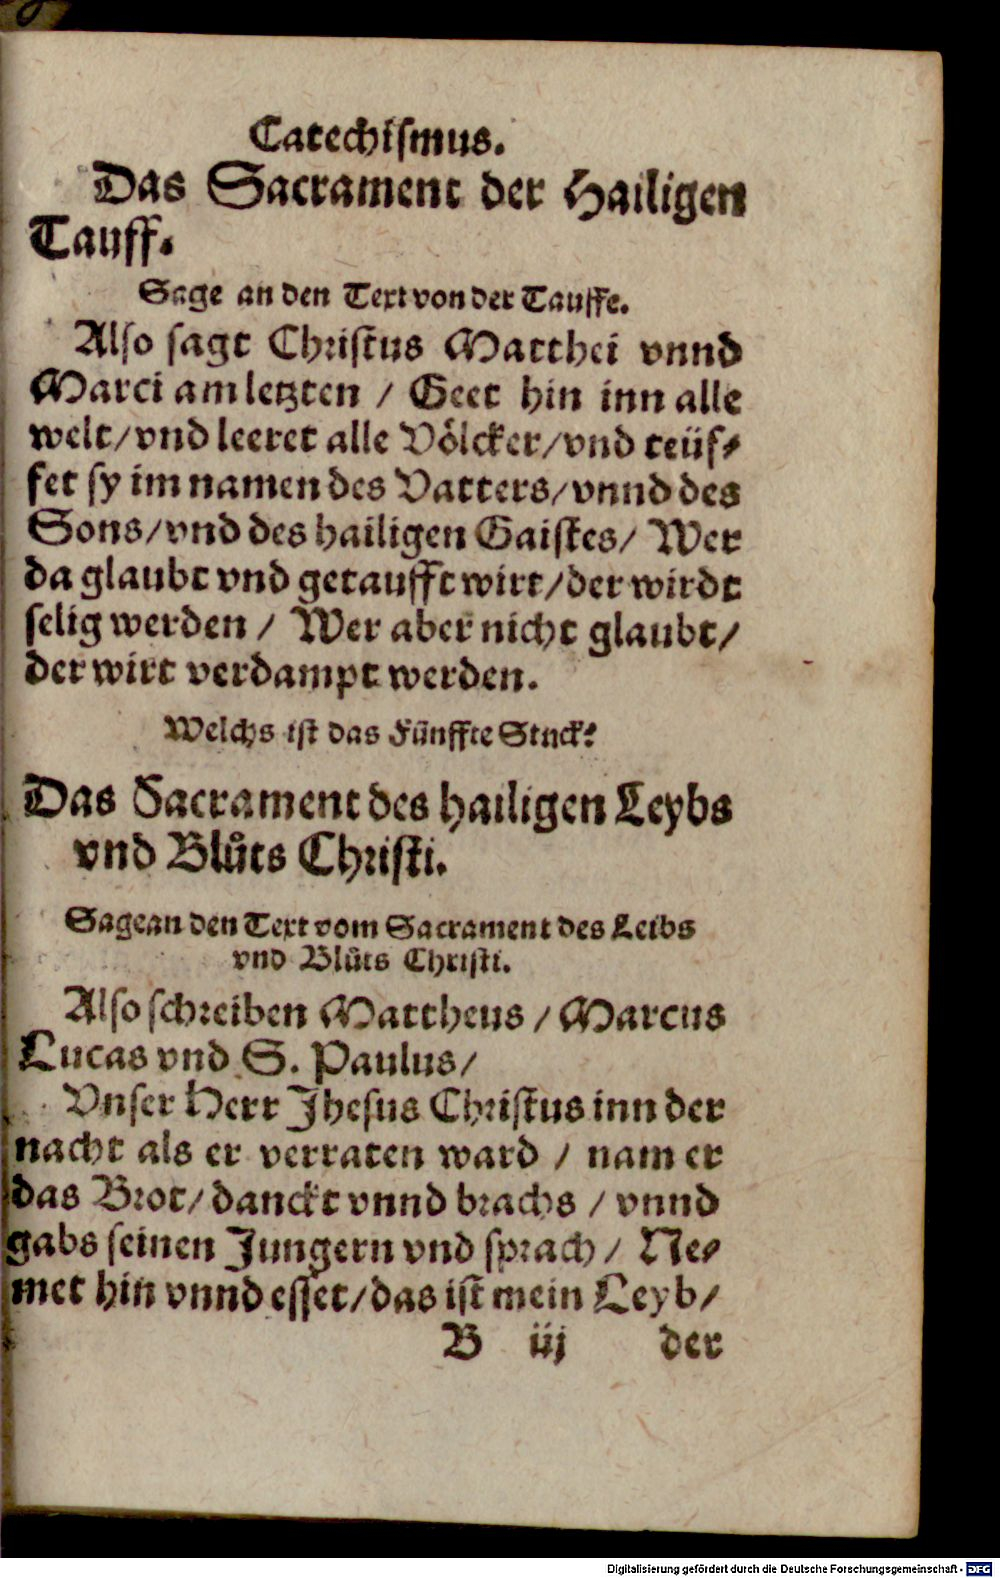 Catechismus.
Das Sacrament der Hailigen
Tauff.
Sage an den Text von der Tauffe.
Also sagt Christus Matthei vnnd
Marci am letzten / Geet hin inn alle
welt/vnd leeret alle Völcker/vnd teüf⸗
fet sy im namen des Vatters/vnnd des
Sons/vnd des hailigen Gaistes/ Wer
da glaubt vnd getaufft wirt/der wirdt
selig werden / Wer aber nicht glaubt/
der wirt verdampt werden.
Welchs ist das Fünffte Stuck?
Das Sacrament des hailigen Leybs
vnd Blůts Christi.
Sage an den Text vom Sacrament des Leibs
vnd Blůts Christi.
Also schreiben Mattheus / Marcus
Lucas vnd S. Paulus/
Vnser Herr Jhesus Christus inn der
nacht als er verraten ward / nam er
das Brot/danckt vnnd brachs / vnnd
gabs seinen Jungern vnd sprach / Ne⸗
met hin vnnd esset/das ist mein Leyb/
B iij der
Digitalisierung gefördert durch die Deutsche Forschungsgemeinschaft - DFG